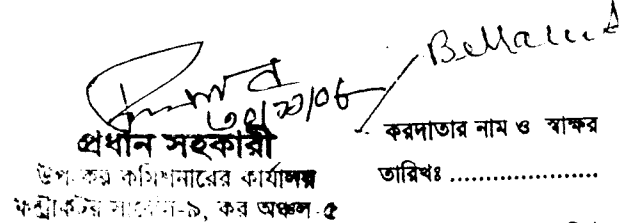 ৩০/১১/০৮
প্রধান সহকারী
উপ-কর কমিশনারের কার্যালয়
কন্ট্রাকটর সার্কেল-৯, কর অঞ্চল-৫
করদাতার নাম ও স্বাক্ষর
তারিখঃ ....................